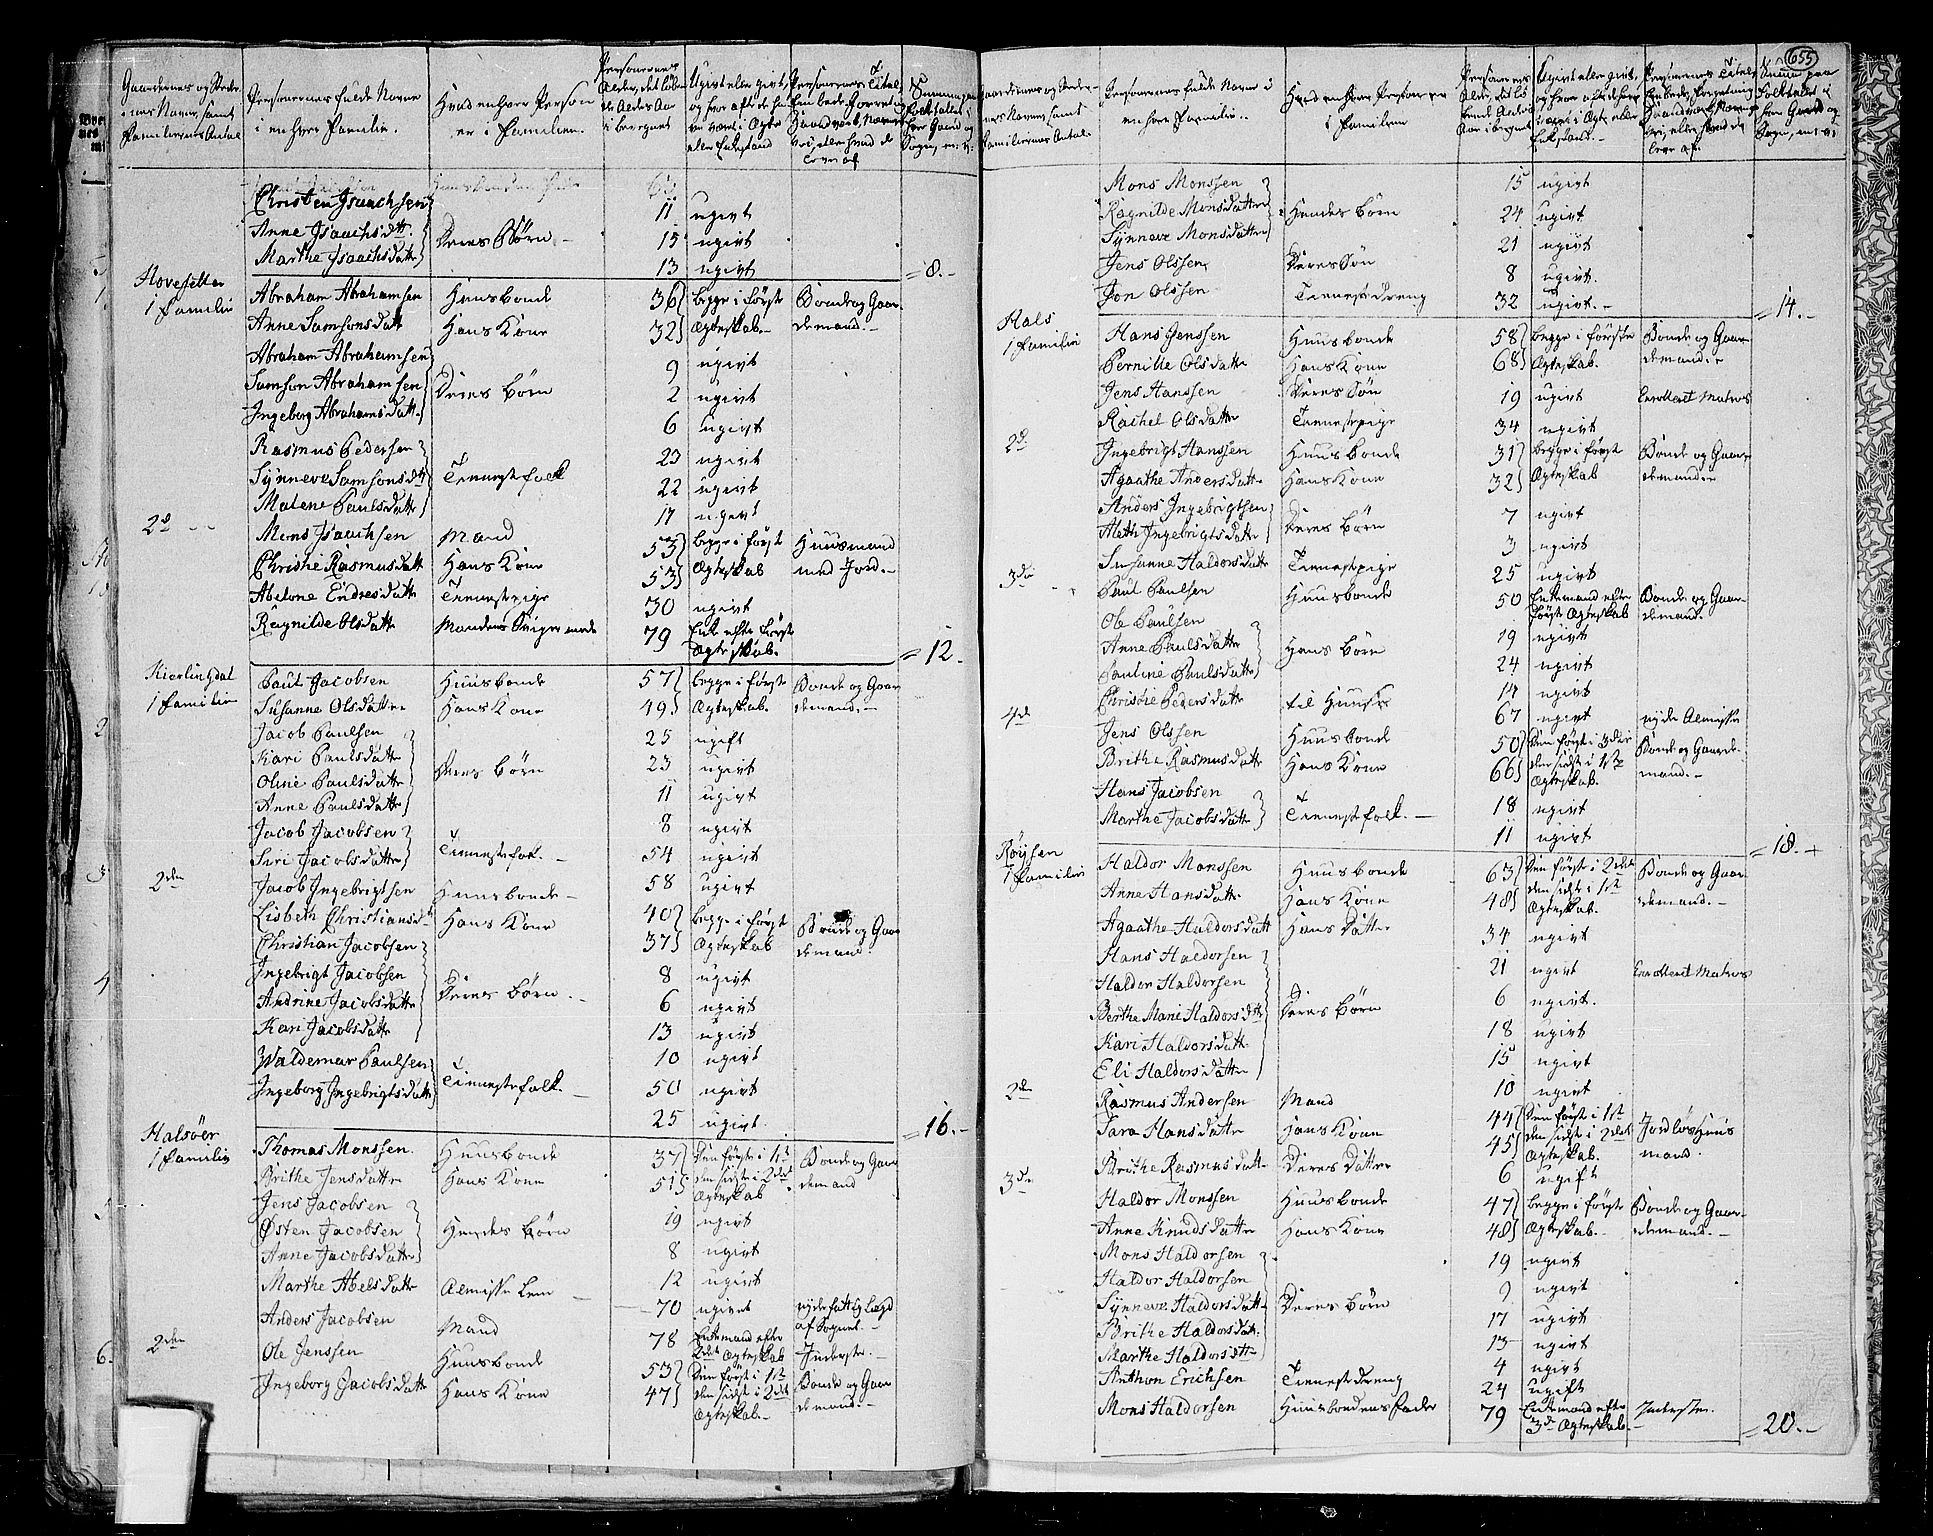 Gaardenes og Stedernes Navne, samt Familiernes Antal | Personernes fulde Navne i enhver Familie. | Hvad enhver Person er i Familien. | Personernes Alder, det løbende Alders Aar iberegnet | Ugivt eller givt, og hvor ofte de have været i Ægte eller Enkestand | Personernes Titel, Embede, Forretning, Haandverk, Næringsvei, eller hvad de lever af
Huusbondens Fader
Christen Isaachsen 11 ugivt
Anne Isaachsdtt. Deres Børn 15 ugivt
Marthe Isaachsdatter 13 ugivt
= 8. -
Hovesetter
1 Familie Abraham Abrahamsen Huusbonde 36 begge i første Bonde og Gaar-
Anne Samsonsdatt Hans Kone 32 Ægteskab. demand.
Abraham Abrahamsen 9 ugivt
Samson Abrahamsen Deres Børn 2 ugivt
Ingeborg Abrahamsdatt. 6 ugivt
Rasmus Pedersen 23 ugivt
Synneve Samsonsdtt Tienestefolk 22 ugivt
Malene Paulsdatter 17 ugivt
2d Mons Isaachsen Mand 53 begge i først Huusmand
Christie Rasmusdatt Hans Kone 53 Ægteskab med Jord.
Abelone Endresdatter Tienestepige 30 ugivt
Ragnilde Olsdatter Mandens Svigermoder 79 Enke efter første Ægteskab.
= 12.
Kierlingdal
1 Familie Paul Jacobsen Huusbonde 57 begge i første Bonde og Gaar
Susanne Olsdatter Hans Kone 49 Ægteskab. demand.
Jacob Paulsen 25 ugift
Kari Paulsdatter Deres Børn 23 ugivt
Oline Paulsdatter 11 ugivt
Anne Paulsdatter 8 ugivt
Jacob Jacobsen Tienestefolk. 54 ugivt
Siri Jacobsdatter 58 ugivt
2den Jacob Ingebrigtsen Huusbonde 40 begge i først Bonde og Gaar
Lisbeth Christiansdtt Hans Kone 37 Ægteskab demand.
Christian Jacobsen 8 ugivt
Ingebrigt Jacobsen Deres Børn. 6 ugivt
Andrine Jacobsdatter 13 ugivt
Kari Jacobsdatter 10 ugivt
Waldemar Paulsen Tienestefolk. 50 ugivt
Ingeborg Ingebrigtsdatt 25 ugivt.
= 16. -
Halsøer
1 Familie Thomas Monssen Huusbonde 37 Den første i 1st Bonde og Gaar
Brithe Jensdatter Hans Kone 51 den sidst i 2det Ægteskab demand
Jens Jacobsen 19 ugivt
Østen Jacobsen Hendes Børn 8 ugivt
Anne Jacobsdatter 12 ugivt
Marthe Abelsdatter Almisse Lem 70 ugivt nyde fattig Lægd af Sognet.
2den Anders Jacobsen Mand 78 Enkemand efter 2det Ægteskab Inderste.
Ole Jenssen Huusbonde 53 Den først i 1st Bonde og Gaar
Ingeborg Jacobsdatter Hans Kone 47 den sidst i 2det Ægteskab. demand.
655
Gaardenes og Stedernes Navne, samt Familiernes Antal | Personernes fulde Navne i enhver Familie. | Hvad enhver Person er i Familien | Personernes Alder, det løbende Alders Aar iberegnet | Ugivt eller givt, og hvor ofte de have været i Ægte eller Enkestand. | Personernes Titel, Embede, Forretning, Haandverk, Næringsvei, eller hvad de lever af.
Mons Monssen 15 ugivt
Ragnilde Monsdatter Hendes Børn 24 ugivt
Synneve Monsdatter 21 ugivt
Jens Olssen Deres Søn 8 ugivt.
Jon Olssen Tienestedreng 32 ugivt.
= 14. -
Hals
1 Familie Hans Jenssen Huusbonde 58 begge i første Bonde og Gaar
Pernille Olsdatter Hans Kone 68 Ægteskab. demand
Jens Hanssen Deres Søn 19 ugivt Enrolleret Matros
Rachel Olsdatter Tienestepige 34 ugivt
2d. Ingebrigt Hanssen Huusbonde 31 begge i først Bonde og Gaar
Agaathe Andersdatter Hans Kone 32 Ægteskab demand
Anders Ingebrigtsen Deres Børn 7 ugivt
Aleth Ingebrigtsdatter 3 ugivt
Susanne Haldorsdatter Tienestepige 25 ugivt
3die Paul Paulsen Huusbonde 50 Enkemand efter først Ægteskab Bonde og Gaardemand.
Ole Paulsen 19 ugivt
Anne Paulsdatter Hans Børn 24 ugivt
Pauline Paulsdatter 14 ugivt
Christie Pedersdatter til Huuse 67 ugivt nyde Almisse
4de Jens Olssen Huusbonde 50 Den først i 3die Bonde og Gaarde
Brithe Rasmusdatter Hans Kone 66 den sidst i 1st Ægteskab. mand.
Hans Jacobsen Tienestefolk. 18 ugivt
Marthe Jacobsdatter 11 ugivt
= 18. -
Røysen
1 Familie Haldor Monssen Huusbonde 63 Den første i 2det Bonde og Gaar
Anne Hansdatter Hans Kone 48 den sidst i 1st Ægteskab. demand.
Agaathe Haldorsdatt Hans Datter 34 ugivt
Hans Haldorsen 21 ugivt Enrolleret Matros
Haldor Haldorsen 6 ugivt.
Berthe Marie Haldorsdtt Deres Børn 18 ugivt
Kari Haldorsdatt. 15 ugivt
Eli Haldorsdatter 10 ugivt
2den Rasmus Andersen Mand 44 Den først i 1st Jordløs Huus
Sara Hansdatter Hans Kone 45 den sidst i 2det Ægteskab. mand.
Brithe Rasmusdatt. Deres Datter 6 ugift
3de. Haldor Monssen Huusbonde 47 begge i første Bonde og Gaar
Anne Knudsdatter Hans Kone 48 Ægteskab. demand.
Mons Haldorsen 19 ugivt
Haldor Haldorsen 9 ugivt
Synneve Haldorsdatt. Deres Børn 17 ugivt
Brithe Haldorsdatt. 13 ugivt
Marthe Haldorsdtt 4 ugivt
Anthon Erichsen Tienestedreng 24 ugift
Mons Haldorsen Huusbondens Fader 79 Enkemand efter 3de Ægteskab. Inderste.
= 20. -